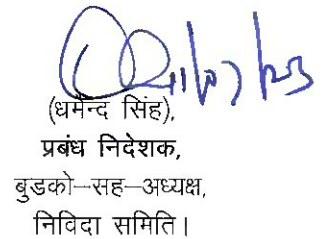 11/07/23
(धर्मेन्द सिंह),
प्रबंध निदेशक,
बुडको–सह–अध्यक्ष,
निविदा समिति।